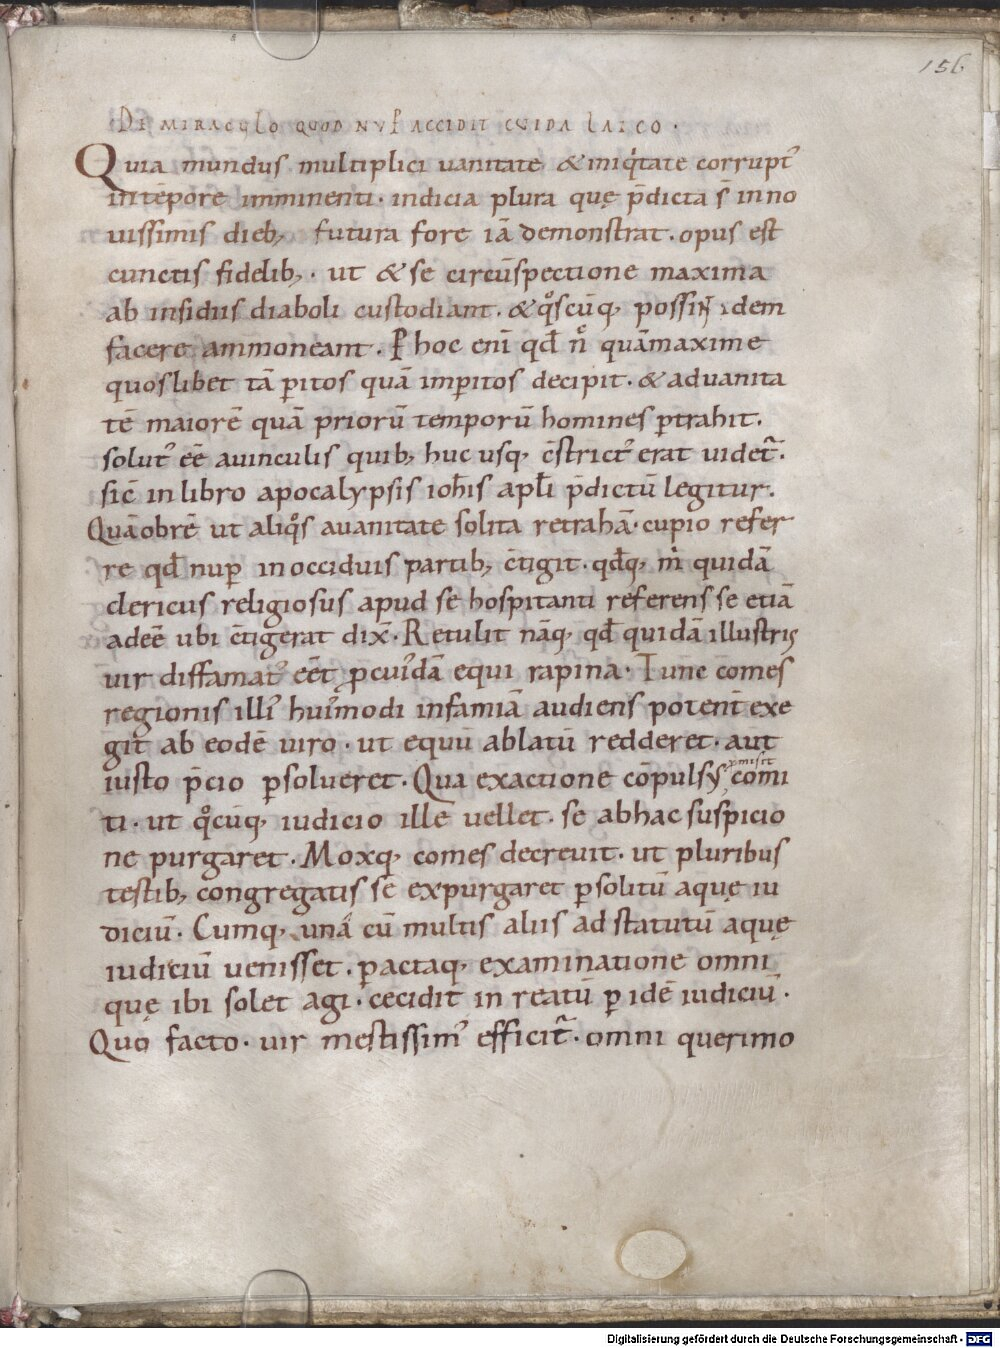 156
DE MIRACULO QUOD NUP ACCIDIT CUIDA LAICO .
Quia mundus multiplici uanitate &iniq̍tate corrupt᾿
in tēpore imminenti · indicia plura quę p̄dicta s̄ in no
uissimis dieb; futura fore iā demonstrat . opus est
cunctis fidelib; . ut & se circūspectione maxima
ab insidiis diaboli custodiant . & qͦscūq; possin̄t idem
facere ammoneant . P hoc eni̅ qd̄ nͦ quāmaxime
quoslibet tā ꝑitos quā imꝑitos decipit . & aduanita
tē maiorē quā priorū temporū homines ꝑtrahit .
solut᾿ eē auinculis quib; huc usq; c̄strict᾿ erat uidet᷑ .
sic̄ in libro apocalypsis ioh̄is apl̄i p̄dictū legitur .
Quāobrē ut aliqͦs auanitate solita retrahā · cupio refer
re qd̄ nuꝑ in occiduis partib; c̄tigit . qd̄q; m̍ quidā
clericus religiosus apud se hospitanti referens se etiā
adeē ubi c̄tigerat dix̄ . Retulit nāq; qd̄ quidā illustris
uir diffamat᾿ eēt ꝓ cui᾿dā equi rapina · Tunc comes
regionis illi᾿ hui᾿modi infamiā audiens potent̄ exe
git ab eodē uiro · ut equū ablatū redderet . aut
iusto p̄cio ꝑsolueret . Qua exactione cōpulsus ꝓmisit comi
ti · ut qͦcūq; iudicio ille uellet . se abhac suspicio
ne purgaret . Moxq; comes decreuit . ut pluribus
testib; congregatis se expurgaret ꝑ solitū aquę iu
diciū . Cumq; unā cū multis aliis ad statutū aquę
iudiciū uenisset . ꝑactaq; examinatione omni
quę ibi solet agi . cecidit in reatū ꝑ idē iudiciū .
Quo facto · uir mestissim᾿ efficit᷑ . omni querimo
Digitalisierung gefördert durch die Deutsche Forschungsgemeinschaft - DFG